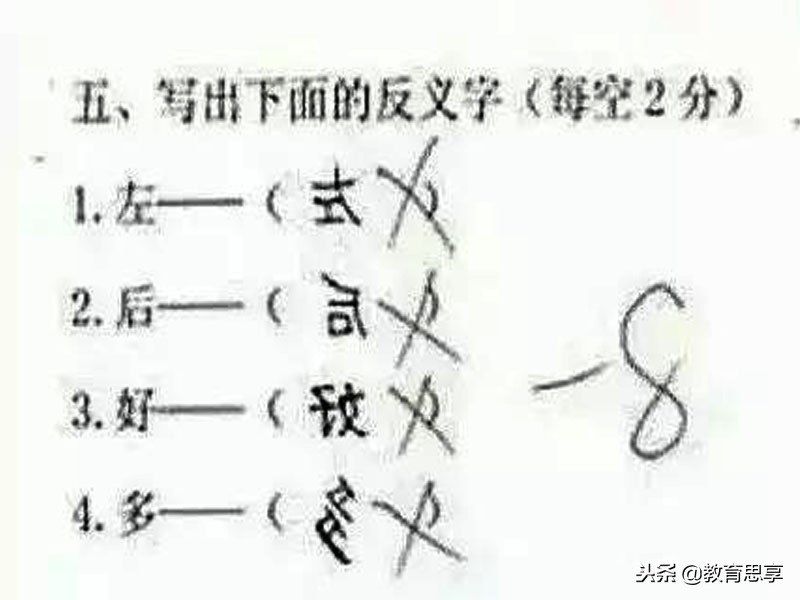 五、写出下面的反义字（每空2分）
1.左——（ ）
2.后——（ ）
3.好——（ ）
4.多——（ ）
-8
头条 @教育思享